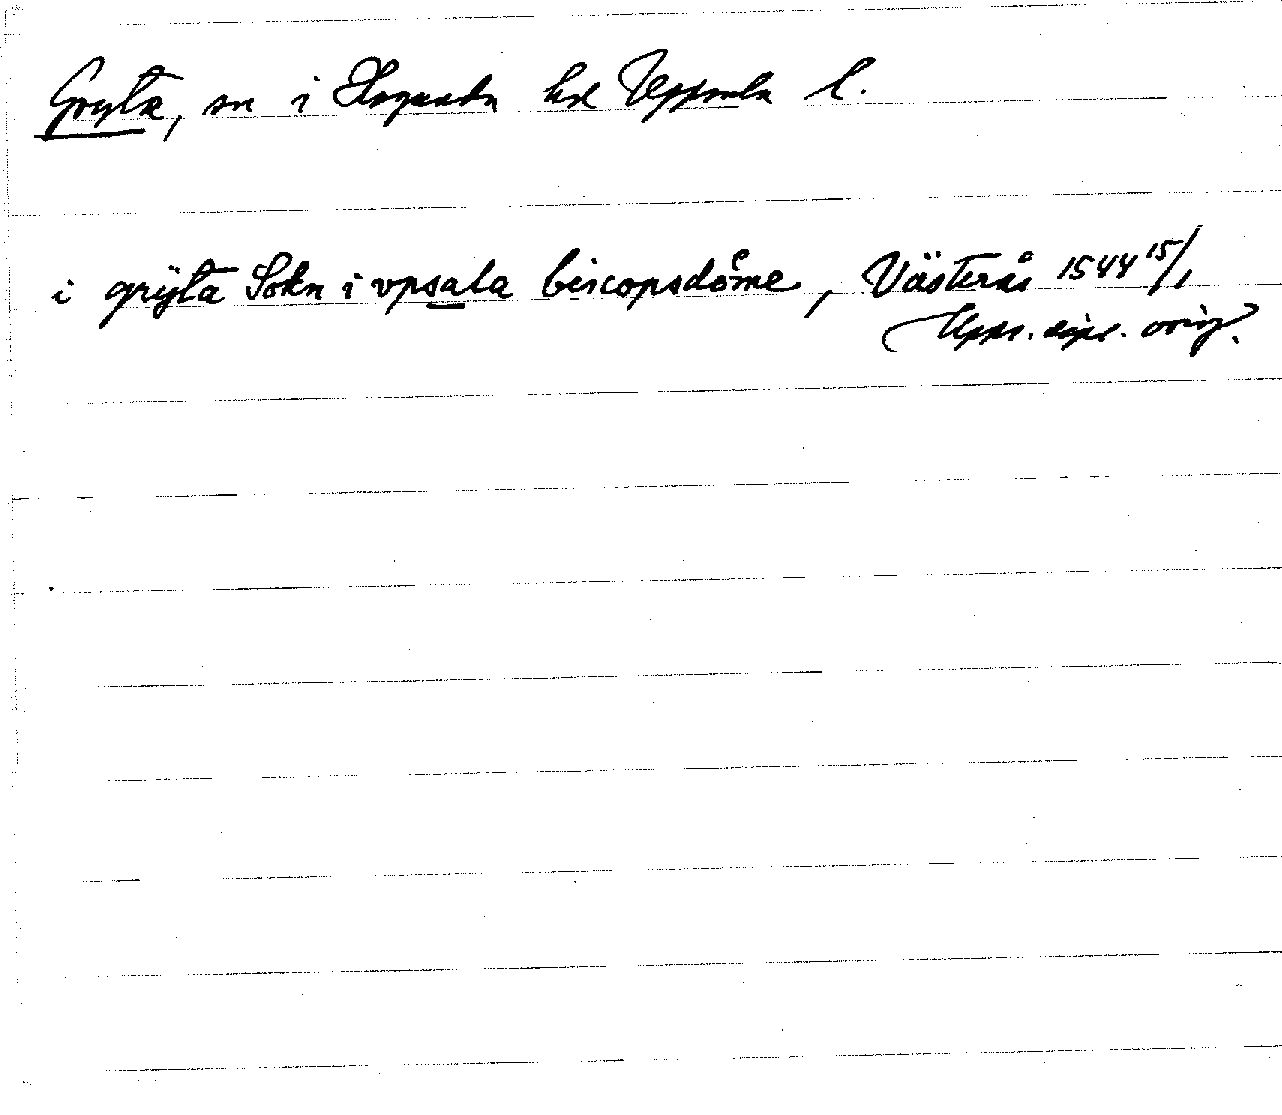 Gryta, sn i Hagunda hd Uppsala l.
i grÿta Sokn i vpsala biscopsdoͤme, Västerås 1544 15/1
Upps. dipl. orig.